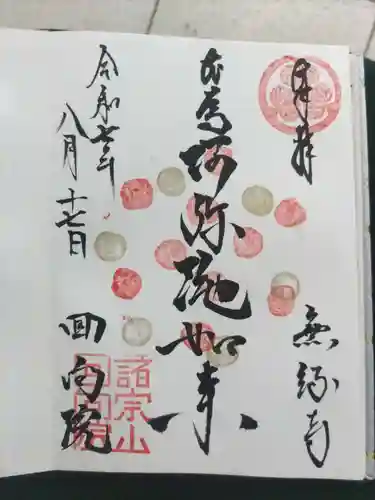 奉拝
無縁寺
本尊阿弥陀如来
令和七年
八月十七日
回向院
諸宗山
回向院